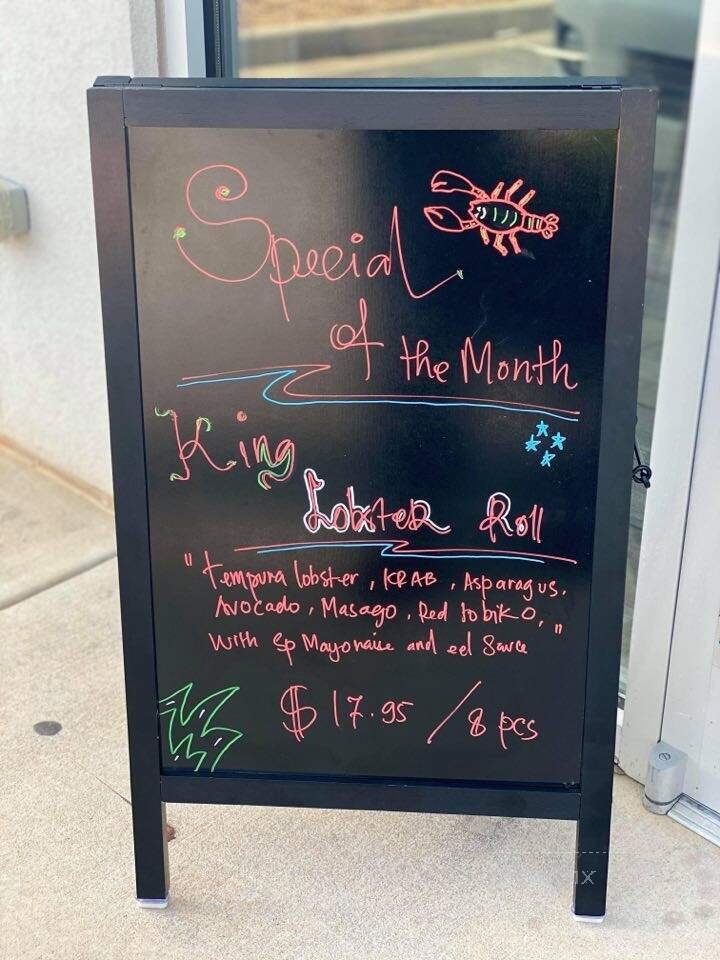 Special
of the Month
King
Lobster Roll
"tempura lobster, KRAB, Asparagus.
Avocado, Masago, Red tobiko,"
with sp Mayonaise and eel sauce
$17.95 / 8 pcs